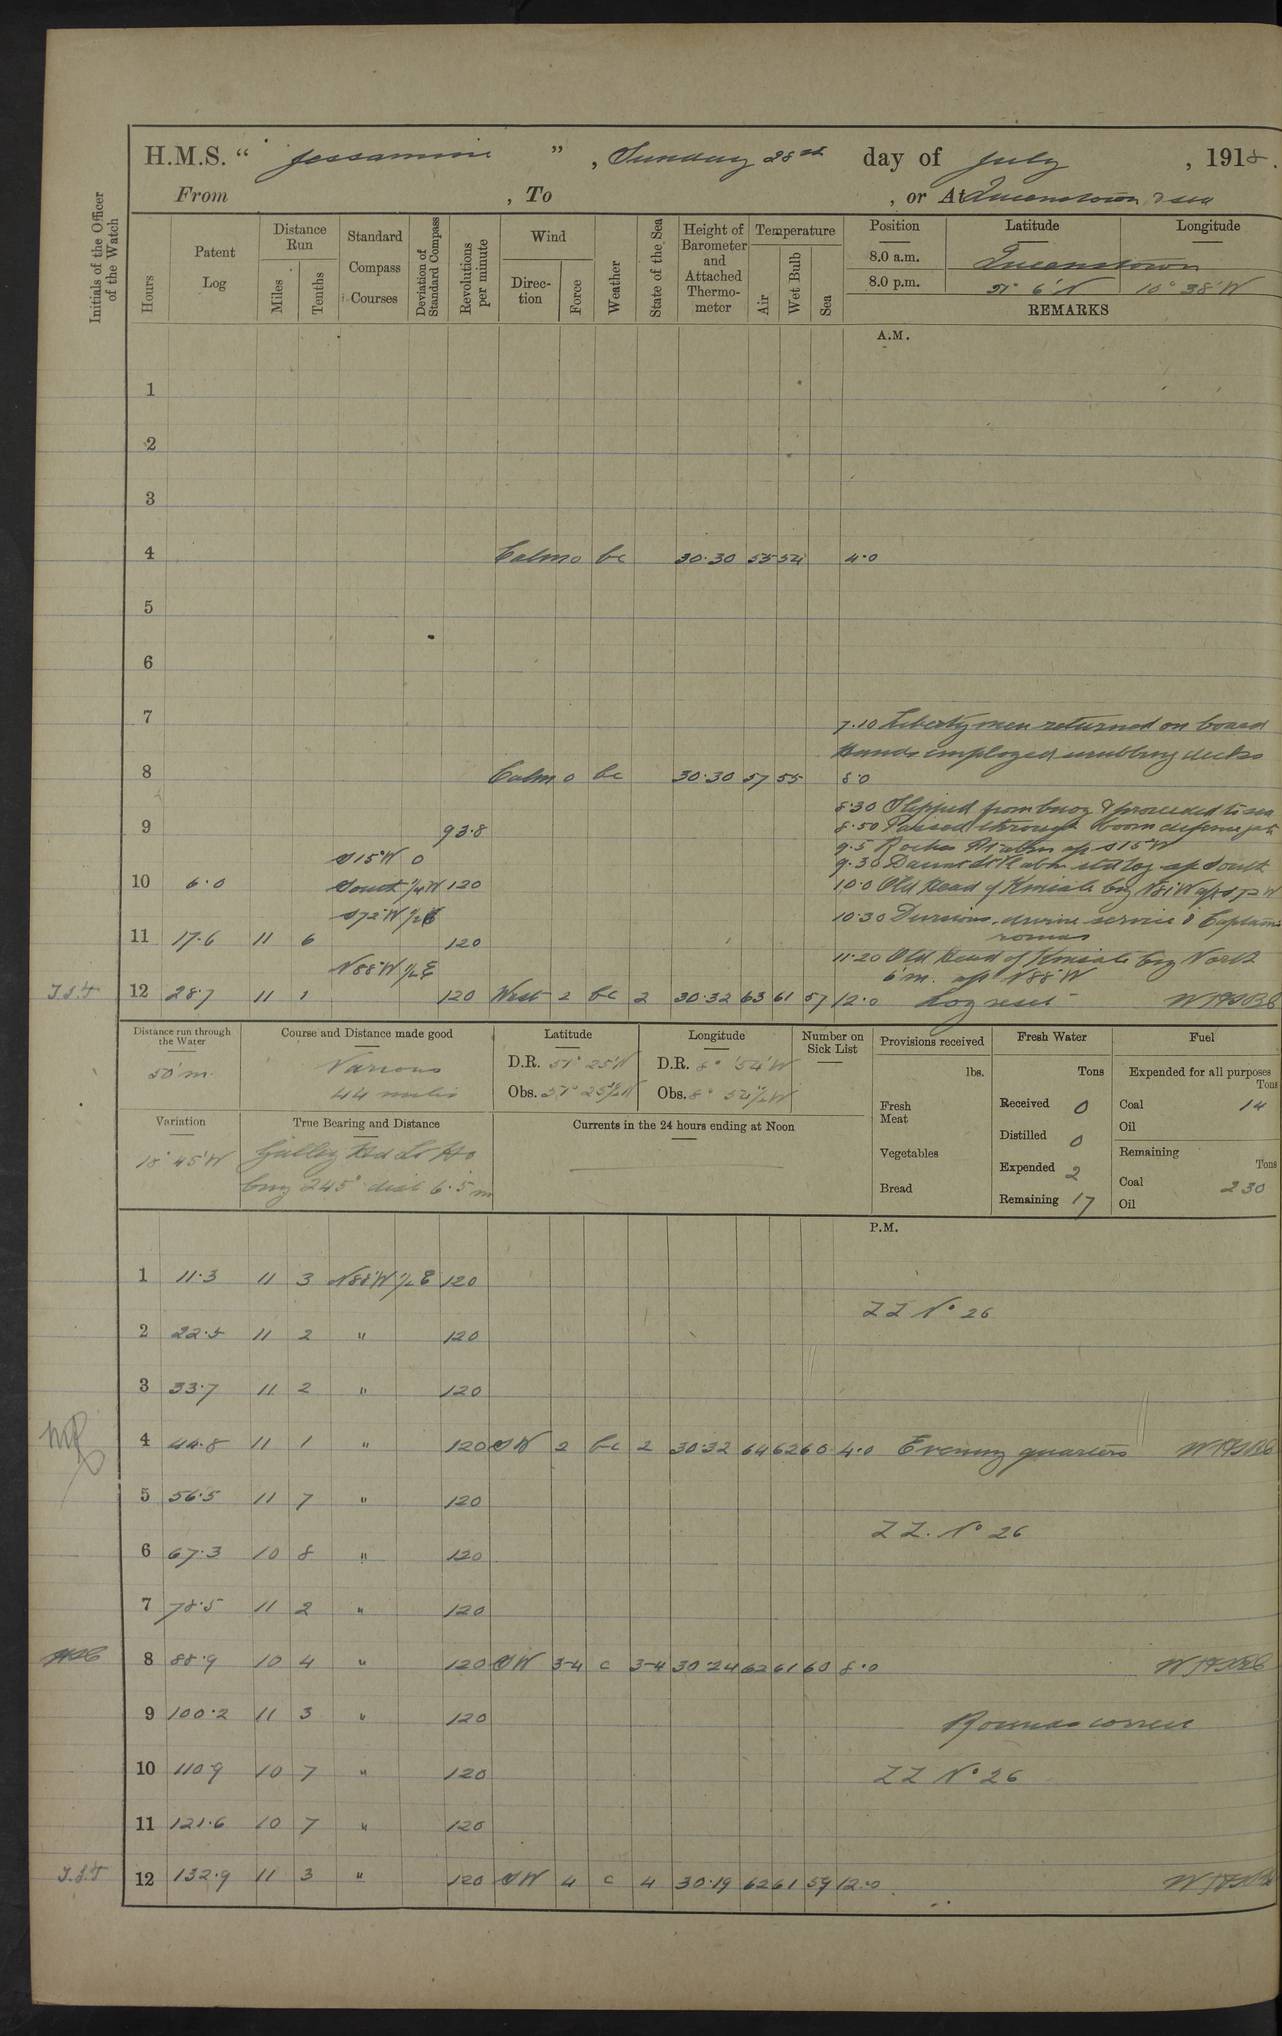 H.M.S. " Jessamine " , Sunday 28th day of July , 1918.
From , To , or At Queenstown & sea
Initials of the Officer of the Watch
Hours
Patent Log
Distance Run
Miles
Tenths
Standard Compass Courses
Deviation of Standard Compass
Revolutions per minute
Wind
Direction
Force
Weather
State of the Sea
Height of Barometer and Attached Thermometer
Temperature
Air
Wet Bulb
Sea
Position Latitude Longitude
8.0 a.m. Queenstown
8.0 p.m. 51° 6' N 10° 38' W
REMARKS
A.M.
1
2
3
4 Calm 0 bc 30.30 55 54 4.0
5
6
7
7.10 Liberty men returned on board
Hands employed scrubbing decks
8 Calm 0 bc 30.30 57 55 8.0
8.30 Slipped from buoy & proceeded to sea
9 93.8 8.50 Passed through boom defence
9.5 Roches Pt abm a/c S15°W
S15°W 0 9.30 Daunt Lt V abm std log a/c South
10 6.0 South 1/4 W 120 10.0 Old Head of Kinsale brg N81W a/c S72W
S72°W 1/2 E 10.30 Divisions, divine service & Captains
rounds
11 17.6 11 6 120
N88°W 1/2 E 11.20 Old Head of Kinsale brg North
6'm. a/c N88°W
12 28.7 11 1 120 West 2 bc 2 30.32 63 61 57 12.0 Log reset
Distance run through the Water
50'm.
Course and Distance made good
Various
44 miles
Latitude
D.R. 51° 25'N
Obs. 51° 25 1/2'N
Longitude
D.R. 8° 54'W
Obs. 8° 54 1/2'W
Number on Sick List
Provisions received
lbs.
Fresh Meat
Vegetables
Bread
Fresh Water
Tons
Received 0
Distilled 0
Expended 2
Remaining 17
Fuel
Expended for all purposes
Tons
Coal 14
Oil
Remaining
Tons
Coal 230
Oil
Variation
18° 45'W
True Bearing and Distance
Galley Hd Lt Ho
brg 245° dist 6.5 m
Currents in the 24 hours ending at Noon
P.M.
1 11.3 11 3 N88°W 1/2 E 120
ZZ No 26
2 22.5 11 2 " 120
3 33.7 11 2 " 120
4 44.8 11 1 " 120 SW 2 bc 2 30.32 64 62 60 4.0 Evening quarters
5 56.5 11 7 " 120
ZZ. No 26
6 67.3 10 8 " 120
7 78.5 11 2 " 120
8 88.9 10 4 " 120 SW 3-4 c 3-4 30.24 62 61 60 8.0
9 100.2 11 3 " 120 Rounds correct
10 110.9 10 7 " 120 ZZ No 26
11 121.6 10 7 " 120
12 132.9 11 3 " 120 SW 4 c 4 30.19 62 61 59 12.0